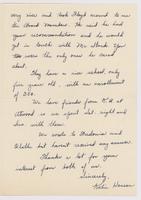 very nice and took Floyd around to see
the Board members. He said he had
your recommendation and he would
get in touch with Mr. Stark. You
were the only one he cared
about.
They have a nice school, only
five years old, with an enrollment
of 250.
We have friends from K.U. at
Atwood so we spent last night and
Sun. with them.
We wrote to Fredonia and
but haven't received any answer.
Thanks a lot for your
interest from both of us.
Sincerely,